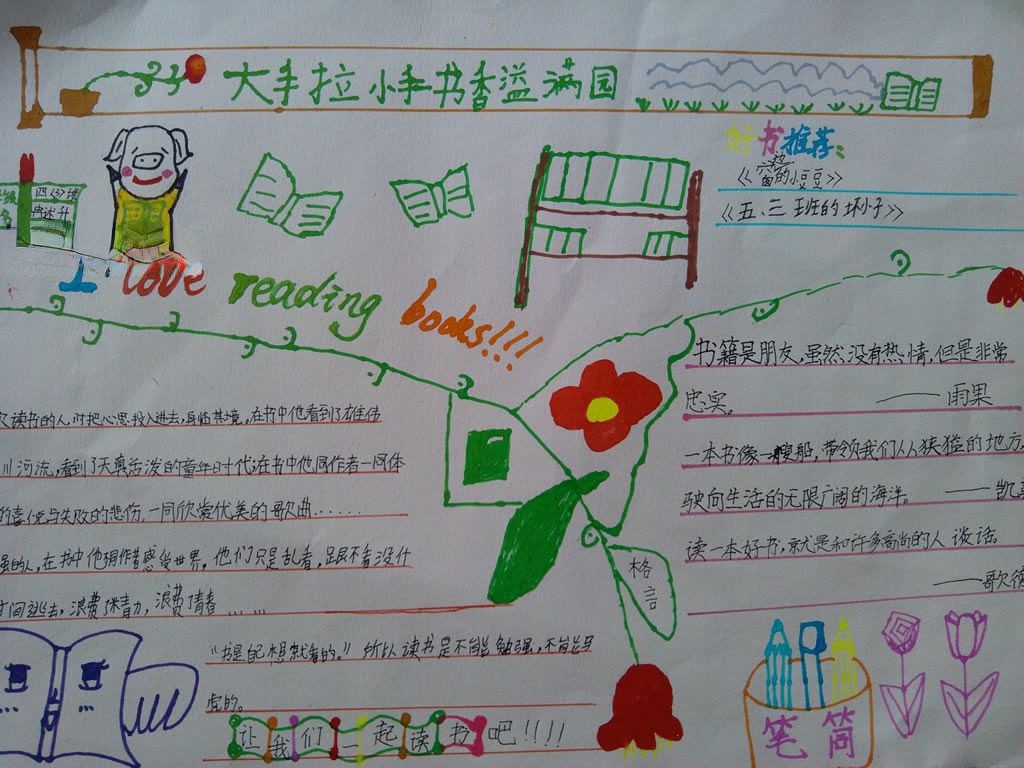 大手拉小手书香溢满园
好书推荐:
《窗的小豆豆》
《五、三班的坏小子》
四〈3〉班
I love reading books!!!
读书的人,时把心思投入进去,身临其境。在书中他看到了雄伟
川河流,看到了天真活泼的童年时代,在书中他同作者一同体
的喜悦与失败的悲伤,一同欣赏优美的歌曲......
强的人,在书中他
感受世界。他们只是乱看,跟不看没什
时间逝去,浪费
力,浪费了青春......
"书是自己想就看的。"所以读书是不能勉强,不能马
虎的。
让我们一起读书吧!!!!
书籍是朋友,虽然没有热情,但是非常
忠实。——雨果
一本书像一艘船,带领我们从狭隘的地方
驶向生活的无限广阔的海洋。——凯
读一本好书,就是和许多高尚的人谈话。
——歌德
格言
笔筒